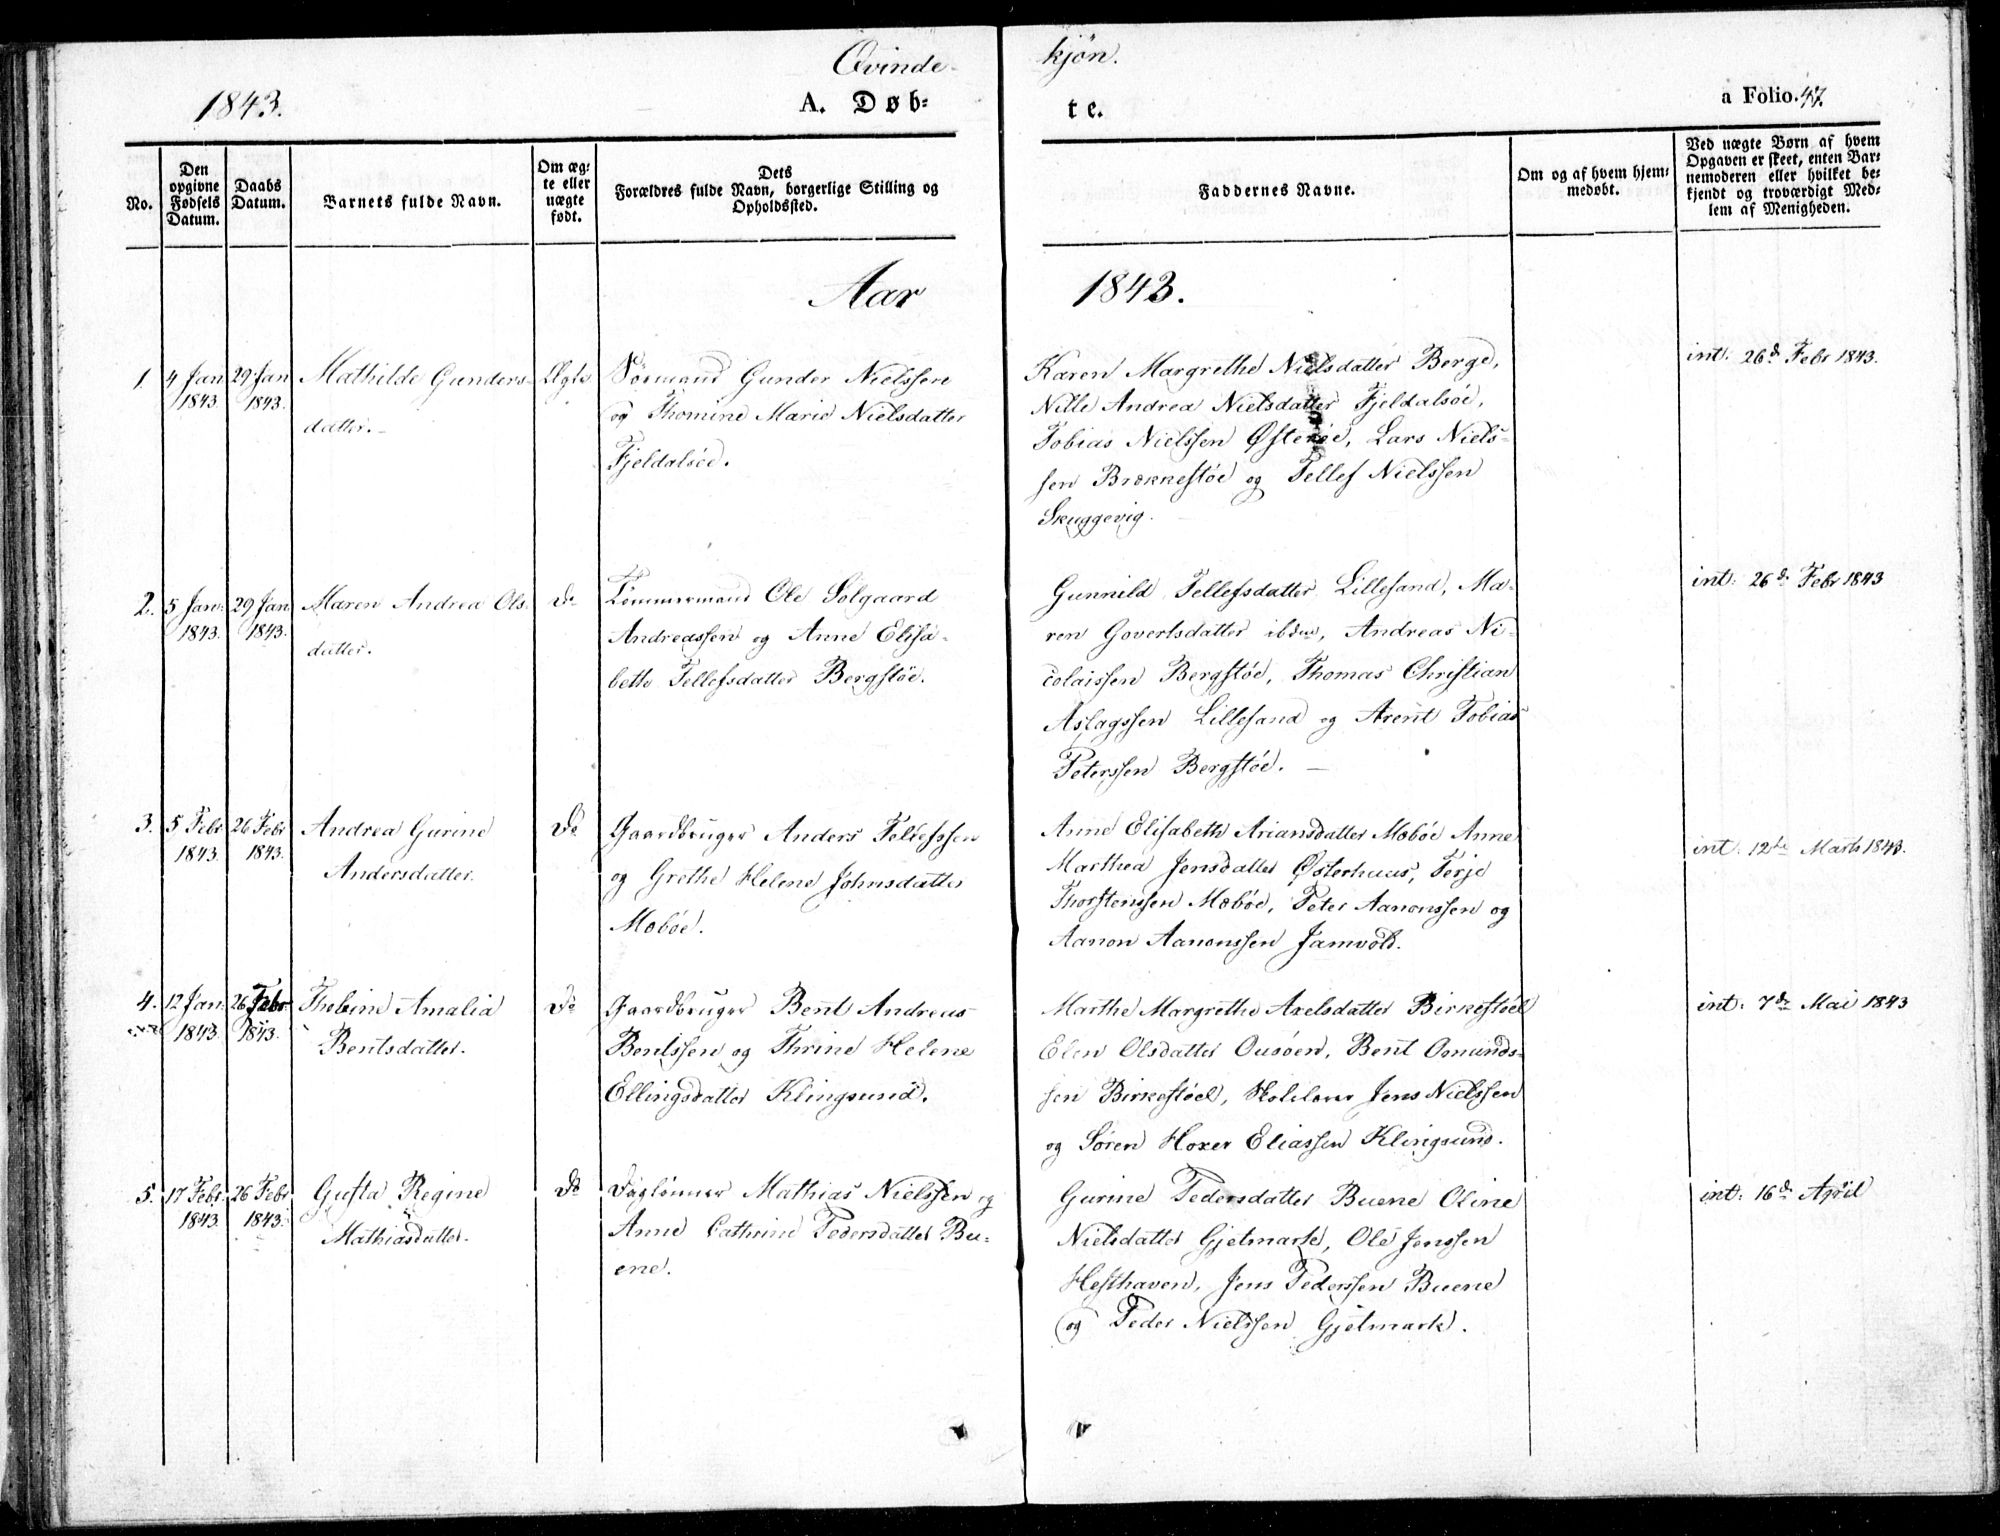 Qvinde- kjøn.
1843.
A. Døb= te.
a Folio.47.
No.
Den
opgivne
Fødsels
Datum.
Daabs
Datum.
Barnets fulde Navn.
Om æg=
te eller
uægte
født.
Dets
Forældres fulde Navn, borgerlige Stilling og
Opholdssted.
Faddernes Navne.
Om og af hvem hjem=
medøbt.
Ved uægte Børn af hvem
Opgaven er skeet, enten Bar=
nemoderen eller hvilket be=
kjendt og troværdigt Med=
lem af Menigheden.
Aar 1843.
1.
4 Jan
1843.
29 Jan
1843.
Mathilde Gunders-
datter.
Ægte
Sømand Gunder Nielssen
og Thomine Marie Nielsdatter
Fjeldalsøe.
Karen Margrethe Nielsdatter Berge,
Nille Andrea Nielsdatter Fjeldalsøe,
Tobias Nielssen Østerøe, Lars Niels-
sen Brækkestøe og Tellef Nielssen
Skuggevig.
int. 26d Febr 1843.
2.
5 Jan:
1843.
29 Jan
1843.
Maren Andrea Ols-
datter.
Do
Tømmermand Ole Solgaard
Andreassen og Anne Elisa-
beth Tellefsdatter Bergstøe.
Gunnild Tellefsdatter Lillesand, Ma-
ren Govertsdatter ibdm, Andreas Ni-
colaissen Bergstøe, Thomas Christian
Aslagssen Lillesand og Arent Tobias
Peterssen Bergstøe.
int: 26d Febr 1843
3.
5 Febr
1843.
26 Febr
1843.
Andrea Gurine
Andersdatter.
Do
Gaardbruger Anders Tellefssen
og Grethe Helene Johnsdatter
Møbøe.
Anne Elisabeth Ariansdatter Møbøe Anne
Marthea Jensdatter Østerhuus, Terje
Thorstenssen Møbøe, Peter Aanonssen og
Aanon Aanonssen Jamvold.
int. 12te Marts 1843.
4.
12 Jan:
1843.
26 Febr
1843.
Thobine Amalia
Bentsdatter.
Do
Gaardbruger Bent Andreas
Bentssen og Thrine Helene
Ellingsdatter Klingsund.
Marthe Margrethe Axelsdatter Birkestøel
Elen Olsdatter Ousøen, Bent Osmunds-
sen Birkestøel, Skolelærer Jens Nielssen
og Søren Hoxer Eliassen Klingsund.
int: 7de Mai 1843
5.
17 Febr.
1843.
26 Febr
1843.
Gusta Regine
Mathiasdatter.
Do
Daglønner Mathias Nielssen og
Anne Cathrine Pedersdatter Bu-
ene.
Gurine Pedersdatter Buene Oline
Nielsdatter Gjetmark, Ole Jenssen
Hesthaven, Jens Pederssen Buene
og Peder Nielssen Gjetmark.
int: 16d April